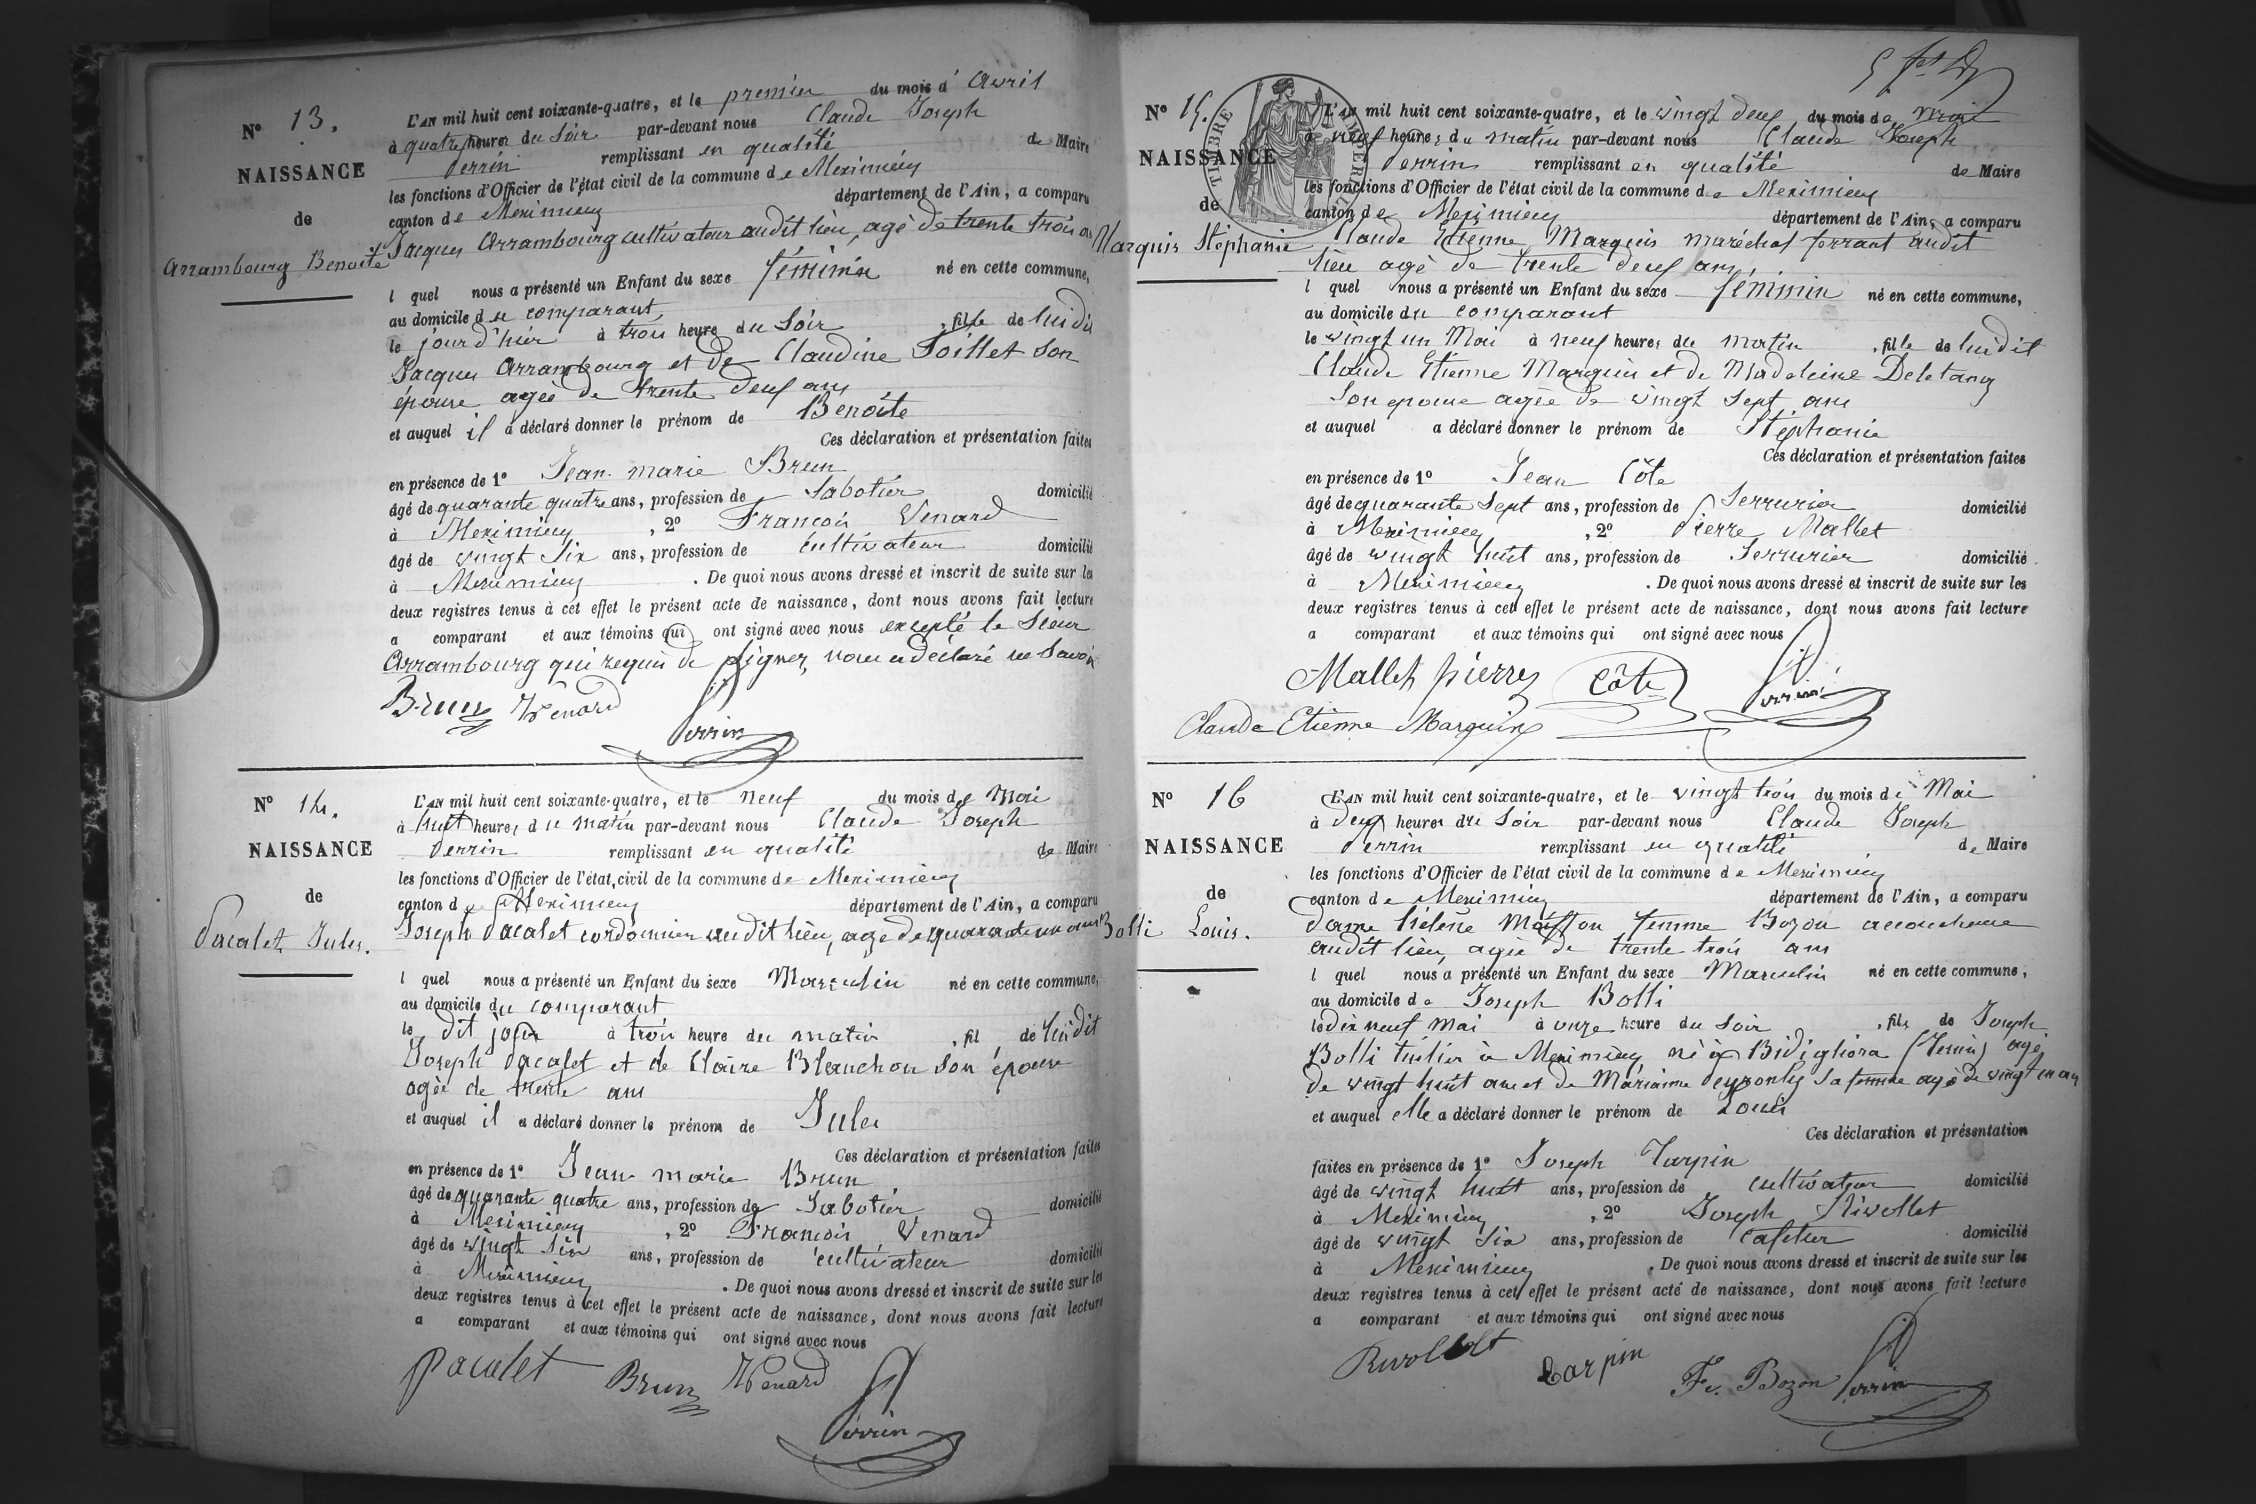 N° 13.
NAISSANCE
de
Arrambourg Benoîte
L'AN mil huit cent soixante-quatre, et le premier du mois d' Avril
à quatre heures du Soir par-devant nous Claude Joseph
Perrin remplissant en qualité de Maire
les fonctions d'Officier de l'état civil de la commune de Meximieux
canton de Meximieux département de l'Ain, a comparu
Jacques Arrambourg cultivateur audit lieu, agé de trente trois a
l quel nous a présenté un Enfant du sexe féminin né en cette commune,
au domicile du comparant
le jour d'hier à trois heure du Soir , fille de lui dit
Jacques Arrambourg et de Claudine Soillet son
épouse agée de trente deux ans
et auquel il a déclaré donner le prénom de Benoîte
Ces déclaration et présentation faites
en présence de 1° Jean marie Brun
âgé de quarante quatre ans, profession de Sabotier domicilié
à Meximieux , 2° François Venard
âgé de vingt Six ans, profession de cultivateur domicilié
à Meximieux . De quoi nous avons dressé et inscrit de suite sur les
deux registres tenus à cet effet le présent acte de naissance, dont nous avons fait lecture
a comparant et aux témoins qui ont signé avec nous excepté le Sieur
Arrambourg qui requis de signer, nous a déclaré ne Savoir
Brun Venard
Perrin
N° 14.
NAISSANCE
de
Pacalet Jules.
L'AN mil huit cent soixante-quatre, et le neuf du mois de Mai
à huit heures du matin par-devant nous Claude Joseph
Perrin remplissant en qualité de Maire
les fonctions d'Officier de l'état civil de la commune de Meximieux
canton de Meximieux département de l'Ain, a comparu
Joseph Pacalet cordonnier audit lieu, agé de quarante un ans
l quel nous a présenté un Enfant du sexe Masculin né en cette commune,
au domicile du comparant
le dit jour à trois heure du matin , fil de lui dit
Joseph Pacalet et de Claire Blanchon son épouse
agée de trente ans
et auquel il a déclaré donner le prénom de Jules
Ces déclaration et présentation faites
en présence de 1° Jean marie Brun
âgé de quarante quatre ans, profession de Sabotier domicilié
à Meximieux , 2° François Venard
âgé de vingt Six ans, profession de cultivateur domicilié
à Meximieux . De quoi nous avons dressé et inscrit de suite sur les
deux registres tenus à cet effet le présent acte de naissance, dont nous avons fait lecture
a comparant et aux témoins qui ont signé avec nous
Pacalet Brun Venard
Perrin
N° 15.
NAISSANCE
de
Marquis Stéphanie
TIMBRE IMPERIAL
L'AN mil huit cent soixante-quatre, et le vingt deux du mois de mai
à neuf heures du matin par-devant nous Claude Joseph
Perrin remplissant en qualité de Maire
les fonctions d'Officier de l'état civil de la commune de Meximieux
canton de Meximieux département de l'Ain, a comparu
Claude Etienne Marquis maréchal ferrant audit
lieu agé de trente deux ans
l quel nous a présenté un Enfant du sexe féminin né en cette commune,
au domicile du comparant
le vingt un Mai à neuf heures du matin , fille de lui dit
Claude Etienne Marquis et de Madeleine Deletang
Son epouse agée de vingt Sept ans
et auquel a déclaré donner le prénom de Stéphanie
Ces déclaration et présentation faites
en présence de 1° Jean Côte
âgé de quarante Sept ans, profession de Serrurier domicilié
à Meximieux , 2° Pierre Mallet
âgé de vingt huit ans, profession de Serrurier domicilié
à Meximieux . De quoi nous avons dressé et inscrit de suite sur les
deux registres tenus à cet effet le présent acte de naissance, dont nous avons fait lecture
a comparant et aux témoins qui ont signé avec nous
Mallet pierre Côte Perrin
Claude Etienne Marquis
N° 16
NAISSANCE
de
Bolli Louis.
L'AN mil huit cent soixante-quatre, et le vingt trois du mois de Mai
à deux heures du Soir par-devant nous Claude Joseph
Perrin remplissant en qualité de Maire
les fonctions d'Officier de l'état civil de la commune de Meximieux
canton de Meximieux département de l'Ain, a comparu
dame hélène femme Bozon accoucheuse
audit lieu, agée de trente trois ans
l quel nous a présenté un Enfant du sexe Masculin né en cette commune,
au domicile de Joseph Bolli
le dix neuf Mai à onze heure du Soir , fils de Joseph
Bolli tuilier à Meximieux né à Bidigliora (Tessin) agé
de vingt huit ans et de Marianne sa femme agée de vingt un ans
et auquel elle a déclaré donner le prénom de Louis
Ces déclaration et présentation
faites en présence de 1° Joseph Turpin
âgé de vingt huit ans, profession de cultivateur domicilié
à Meximieux , 2° Joseph Rivollet
âgé de vingt Six ans, profession de Cafetier domicilié
à Meximieux . De quoi nous avons dressé et inscrit de suite sur les
deux registres tenus à cet effet le présent acte de naissance, dont nous avons fait lecture
a comparant et aux témoins qui ont signé avec nous
Rivollet Fe. Bozon Perrin